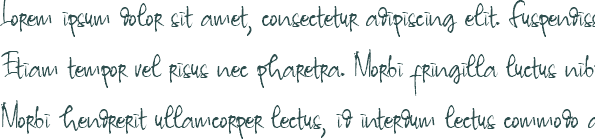 Lorem ipsum dolor sit amet, consectetur adipiscing elit. Suspendiss
Etiam tempor vel risus nec pharetra. Morbi fringilla luctus nib
Morbi hendrerit ullamcorper lectus, id interdum lectus commodo a